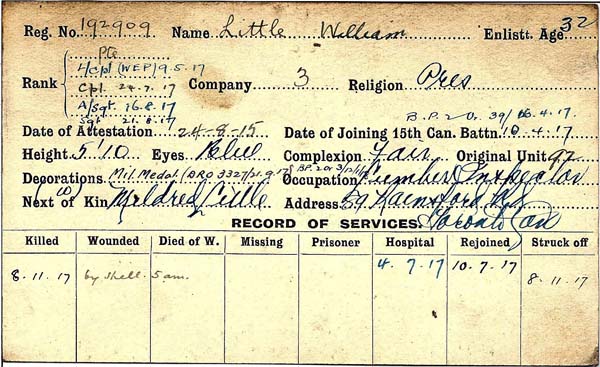 Reg. No. 192909 Name Little William Enlistt. Age 32
Pte
L/Cpl (WEP) 9.5.17
Rank Cpl 24.7.17 Company 3 Religion Pres
A/Sgt 16.8.17
Sgt 21.8.17 B.P. 2 O. 39/16.4.17.
Date of Attestation 24-8-15 Date of Joining 15th Can. Battn. 10.4.17
Height 5'10 Eyes Blue Complexion Fair Original Unit 92
Decorations Mil. Medal. (ARO 3327/21.9.17) Occupation Lumber Inspector
Next of Kin (W) Mildred Little Address 59 Rainsford Rd
RECORD OF SERVICES. Toronto Can
Killed Wounded Died of W. Missing Prisoner Hospital Rejoined Struck off
8.11.17 by shell. 5 am. 4.7.17 10.7.17 8.11.17